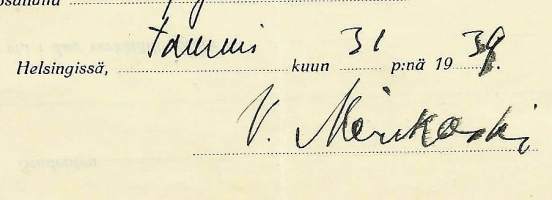 Helsingissä, Tammi kuun 31 p:nä 1939.
V. Merikoski